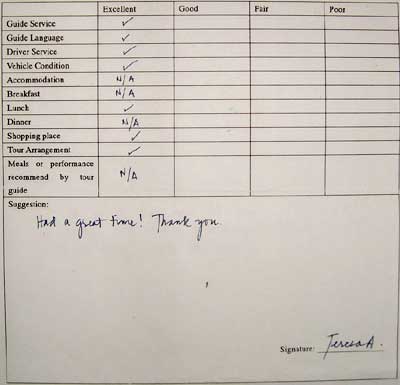 Excellent Good Fair Poor
Guide Service ✓
Guide Language ✓
Driver Service ✓
Vehicle Condition ✓
Accommodation N/A
Breakfast N/A
Lunch ✓
Dinner N/A
Shopping place ✓
Tour Arrangement ✓
Meals or performance
recommend by tour N/A
guide
Suggestion:
Had a great time! Thank you.
Signature: Teresa A.